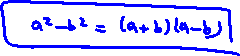 a² - b² = (a+b)(a-b)